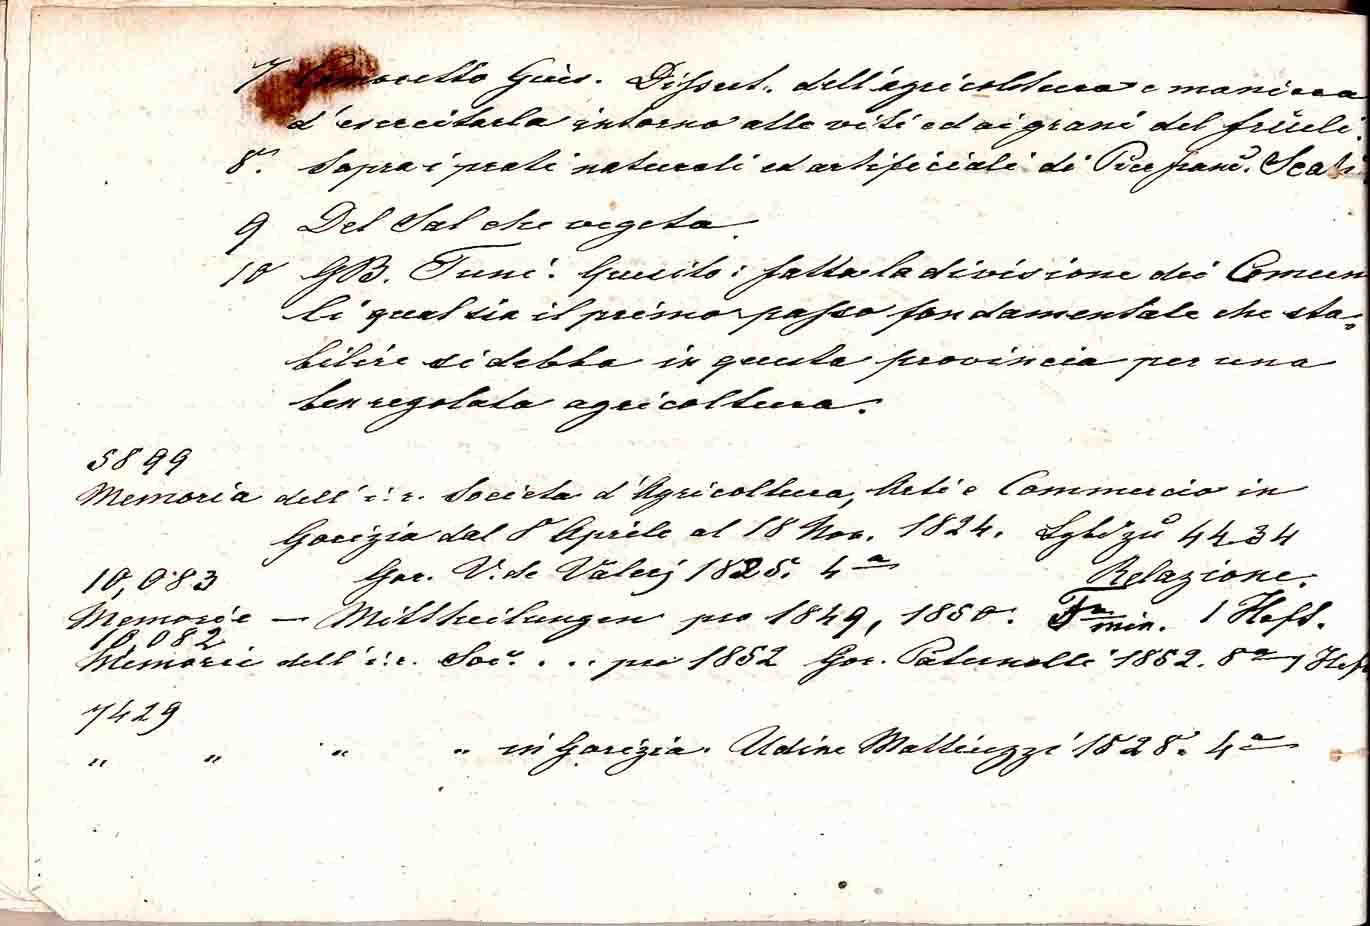 7 Gius. Dissert. dell'agricoltura e maniera
d'esercitarla intorno alle viti ed ai grani del friuli.
8. Sopra i prati naturali ed artificiali di
9 Del Sal che vegeta.
10 GB. Quesito: fatta la divisione dei Comun
li qual sia il primo passo fondamentale che sta=
bilire si debba in questa provincia per una
ben regolata agricoltura.
5899
Memoria dell' i: r. Societa d'Agricoltura, Arti e Commercio in
Gorizia dal 8 Aprile al 18 Nov. 1824. 4434
10,083 Gor. V. de Valerj 1825. 4a
Relazione.
Memorie — Mittheilungen pro 1849, 1850. min. 1 Heft.
10,082
Memorie dell' i: r. Soc. . . . pro 1852 Gor. Paternolli 1852. 8a 1 Heft
7429
„ „ „ „ in Gorizia. Udine Mattiuzzi 1828. 4a